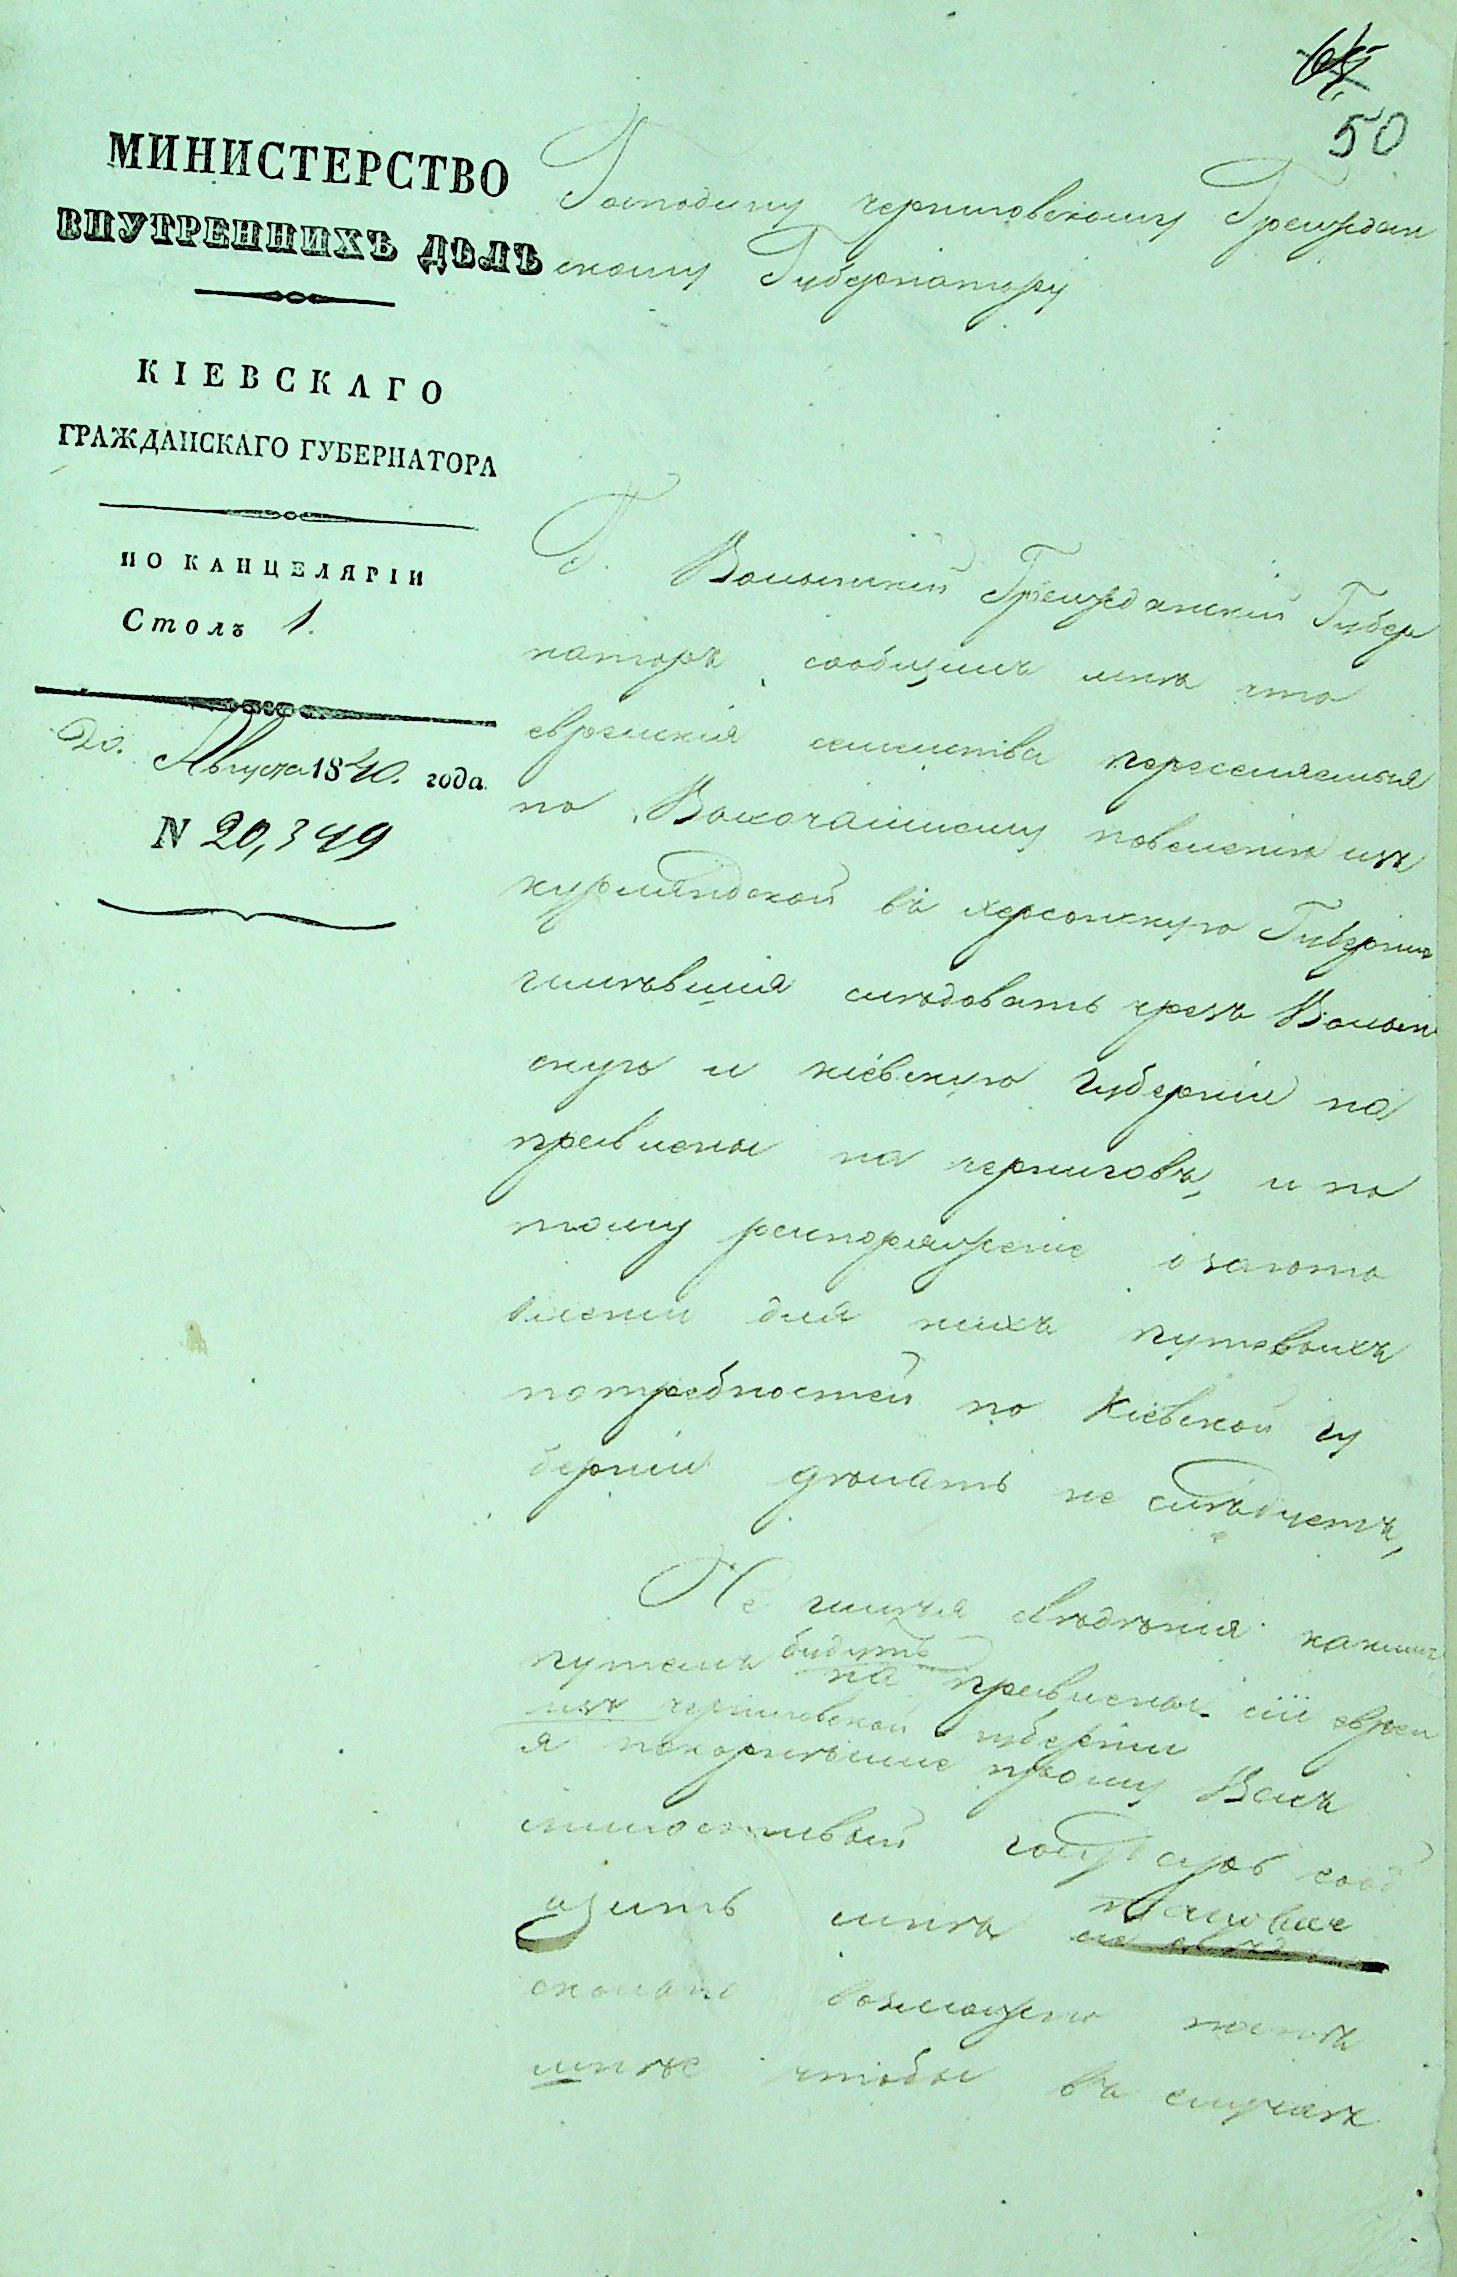 50
МИНИСТЕРСТВО
ВНУТРЕННИХЪ ДѢЛЪ
КІЕВСКАГО
ГРАЖДАНСКАГО ГУБЕРНАТОРА
ПО КАНЦЕЛЯРІИ
Столъ 1.
20. Августа 1840. года.
N 20,349
Господину черниговскому Граждан
скому Губернатору
Г. Волынскій Гражданскій Губер
наторъ сообщилъ мнѣ что
еврейскія семейства переселяемыя
по Высочайшему повелѣнію изъ
курляндской въ херсонскую Губернію
имѣвшія слѣдовать чрезъ Волын
скую и кіевскую губерніи на
правлены на черниговъ, и по
тому распоряженіе о загото
вленіи для нихъ путевыхъ
потребностей по Кіевской гу
берніи дѣлать не слѣдуетъ,
Не имѣя свѣдѣнія какимъ
путемъ будутъ на правлены сіи евреи
изъ черниговской губерніи
я покорнѣйше прошу Васъ
милостивый государь сооб
щить мнѣ таковыя
сколько возможно поспѣ
шнѣе чтобы въ случаѣ